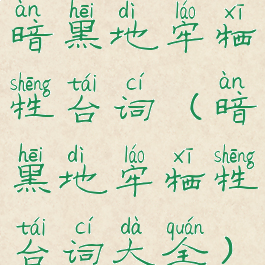 àn hēi dì láo xī
暗黑地牢牺
shēng tái cí àn
牲台词（暗
hēi dì láo xī shēng
黑地牢牺牲
tái cí dà quán
台词大全）